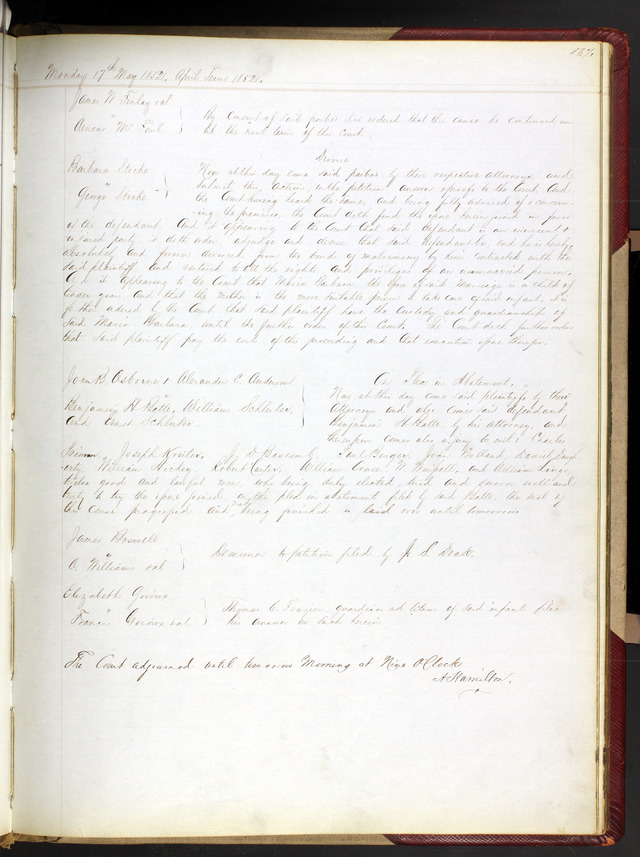 167.
Monday 17th May 1852. April Term 1852.
James W Finlay et al
vs
Aeneas Mc Faul
By consent of said parties it is ordered that this cause be continued un
til the next term of this Court.
Divorce
Barbara Stocke
vs
George Stocke
Now at this day come said parties by their respective attorneys, and
submit this action, with petition answer & proofs to the Court. And
the Court having heard the same, and being fully advised of & concern
ing the premises, the Court doth find the issue herein joined in favor
of the defendant. And it appearing to the Court that said defendant is an innocent &
injured party, it doth order, adjudge and decree that said defendant be, and he is hereby
absolutely and forever divorced from the bonds of matrimony by him contracted with the
said plaintiff and restored to all the rights and privileges of an unmarried person.
And it appearing to the Court that Maria Barbara, the issue of said Marriage is a child of
tender years and that the mother is the more suitable person to take care of said infant, it is
further ordered by the Court that said plaintiff have the Custody and guardianship of
said Maria Barbara, until the further order of this Court. The Court doth further order
that said plaintiff pay the costs of this proceeding and that execution issue therefor.
John B. Osborne & Alexander C. Anderson
vs
Benjamin H Batte, William Schlueter,
and Ernst Schlueter
On Plea in Abatement.
Now at this day come said plaintiffs by their
Attorney and also comes said defendant
Benjamin H Batte by his attorney, and
thereupon comes also a jury to wit: Charles
Joseph J. D. Bascomb, Paul Burger, John Daniel
William Hickey, Robert William W and William
twelve good and lawful men, who being duly elected, tried and sworn well and
truly to try the issue joined on the plea in abatement filed by said Batte, the trial of
the cause progressed and not being finished is laid over until tomorrow
James Boswell
vs
A Williams et al
Demurrer to petition filed by J. S. Deake.
Elizabeth Giroux
vs
Francis Giroux et al
Thomas C. Frazier guardian ad litem of said infants files
his answer as such herein
The Court adjourned until tomorrow Morning at Nine O'Clock
A Hamilton.